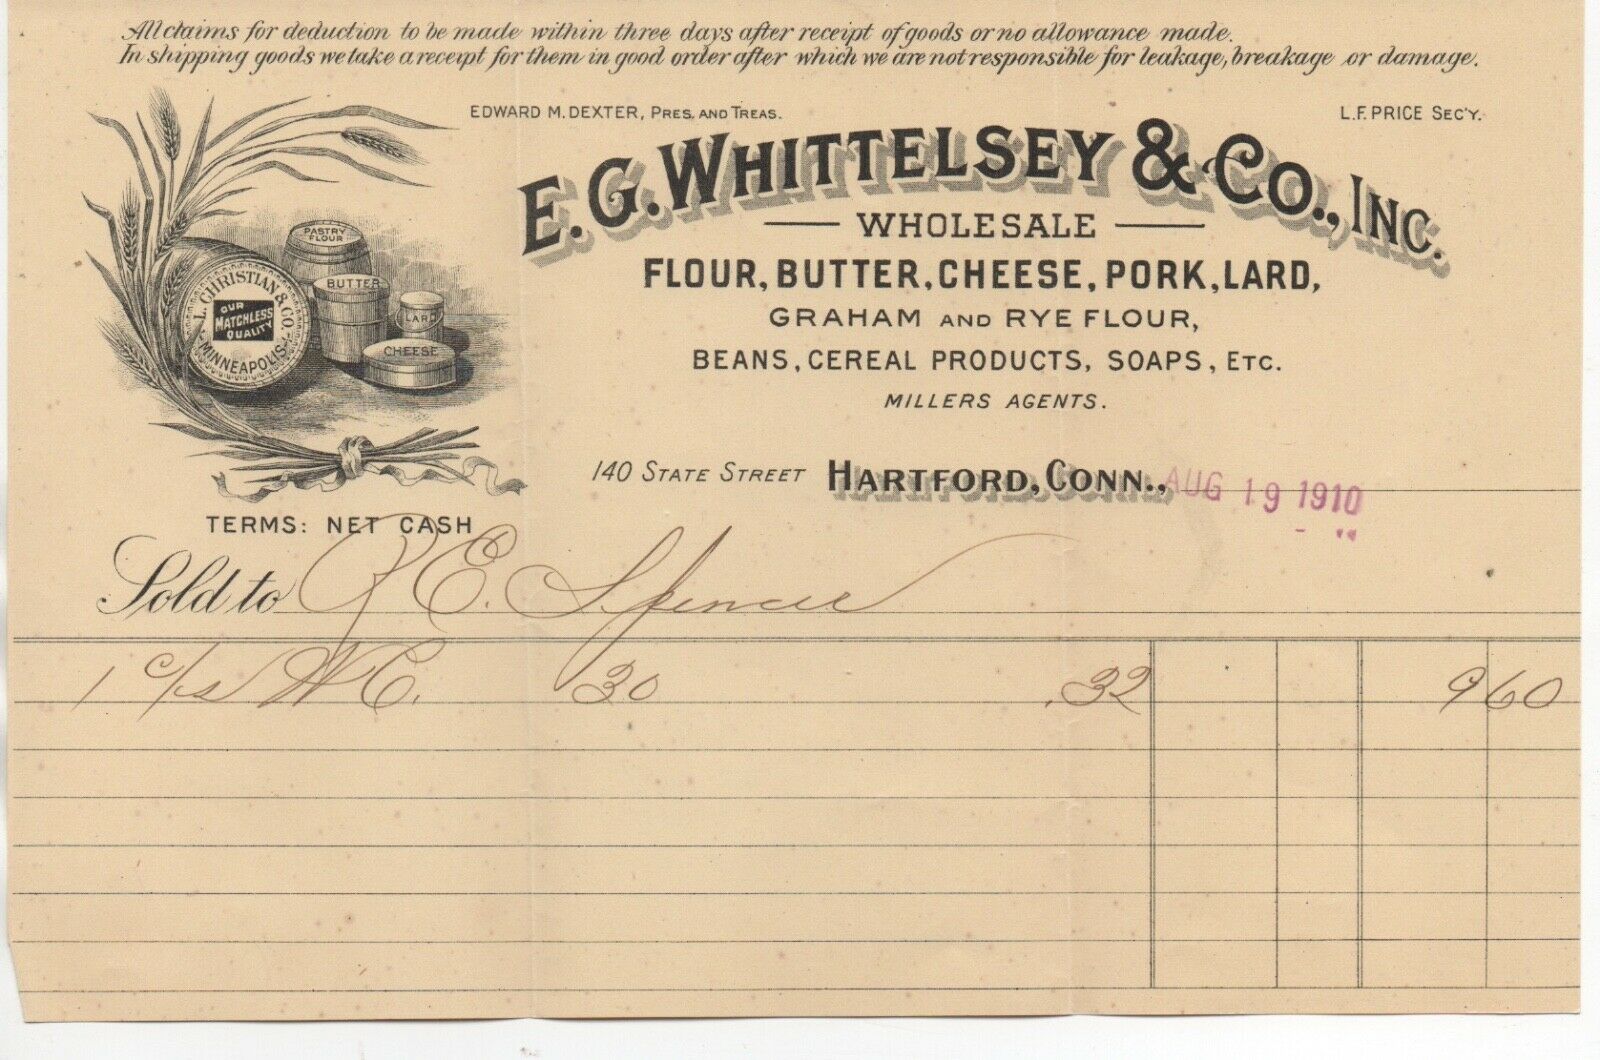 All claims for deduction to be made within three days after receipt of goods or no allowance made.
In shipping goods we take a receipt for them in good order after which we are not responsible for leakage, breakage or damage.
EDWARD M. DEXTER, PRES. AND TREAS.
L.F. PRICE SEC'Y.
E. G. WHITTELSEY & CO., INC.
WHOLESALE
FLOUR, BUTTER, CHEESE, PORK, LARD,
GRAHAM AND RYE FLOUR,
BEANS, CEREAL PRODUCTS, SOAPS, ETC.
MILLERS AGENTS.
PASTRY FLOUR
BUTTER
LARD
CHEESE
L. CHRISTIAN & CO.
OUR
MATCHLESS
QUALITY
MINNEAPOLIS
140 STATE STREET HARTFORD, CONN., AUG 19 1910
TERMS: NET CASH
Sold to E. Spencer
1 c/s W C. 30 .32 9 60